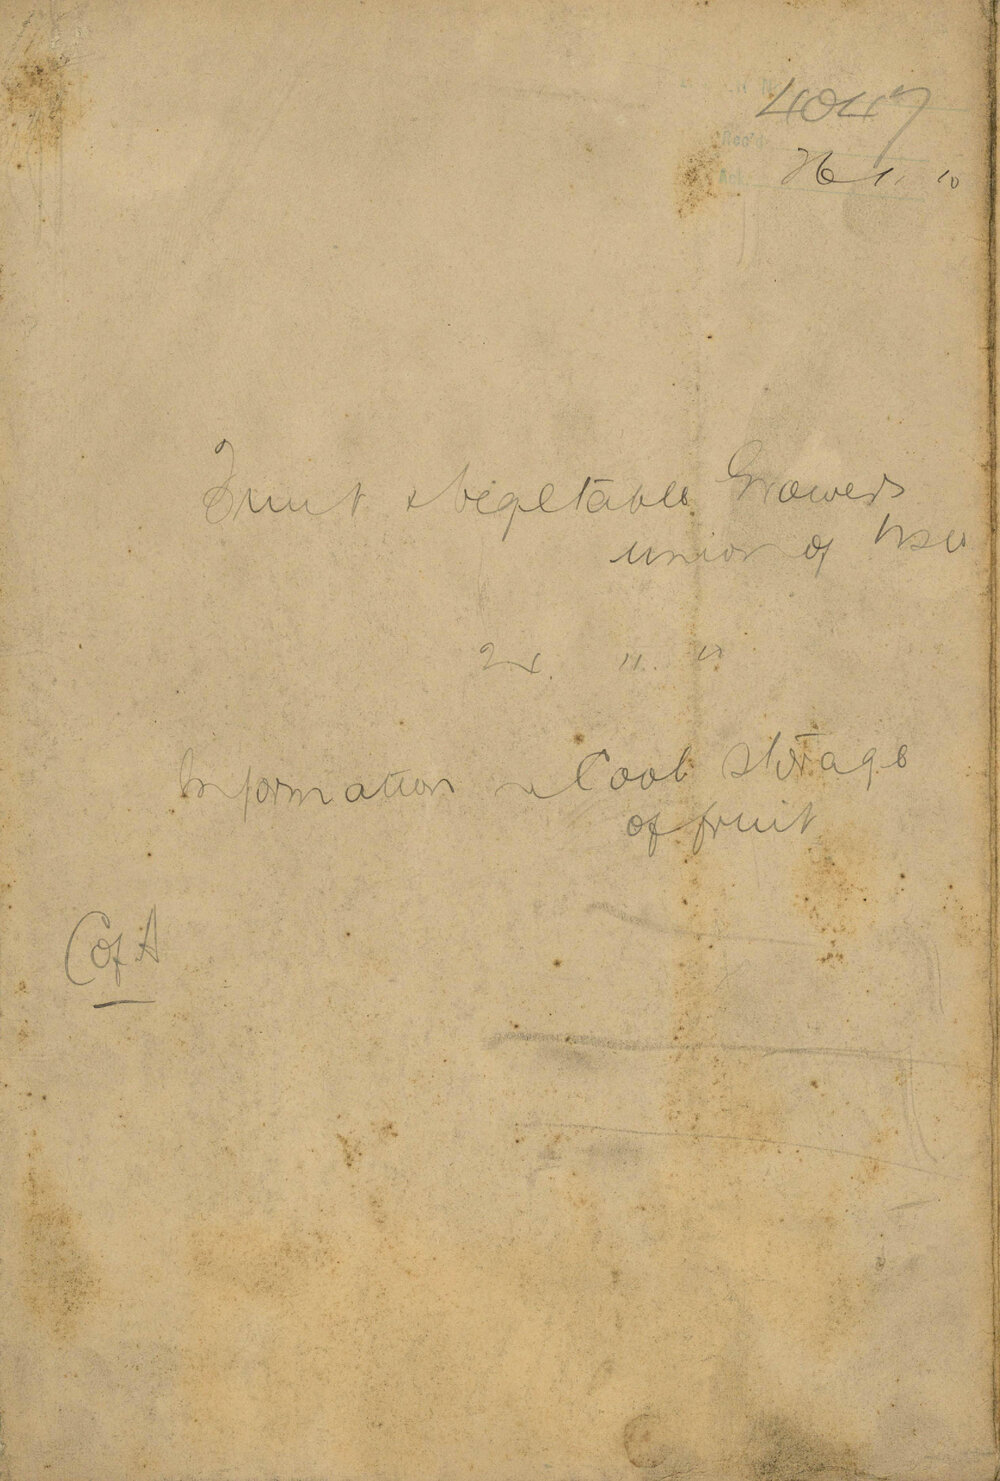 4047
Rec'd
26 1. 10
Fruit & Vegetable Growers
union of NSW
24. " "
Information re Cool Storage
of fruit
C of A